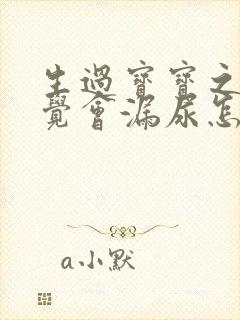 生過寶寶之
覺會漏尿怎
a小默